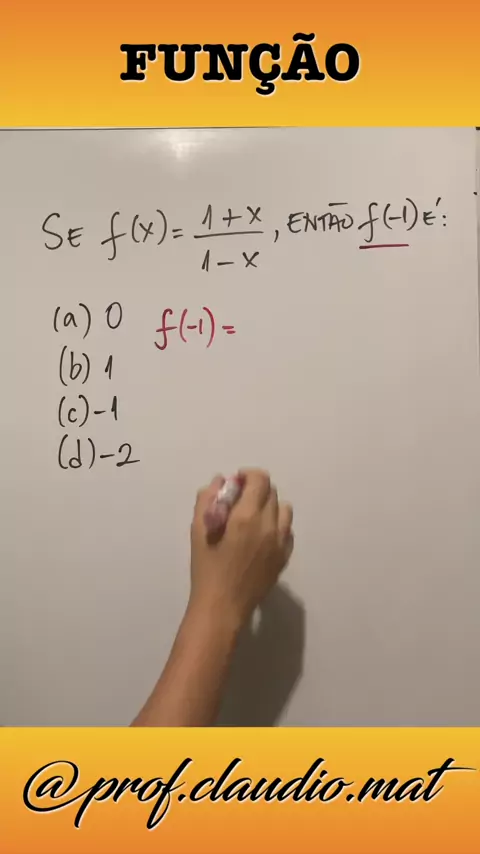 FUNÇÃO
SE f(x) = \frac{1+x}{1-x}, ENTÃO f(-1) É:
(a) 0 f(-1) =
(b) 1
(c) -1
(d) -2
@prof.claudio.mat